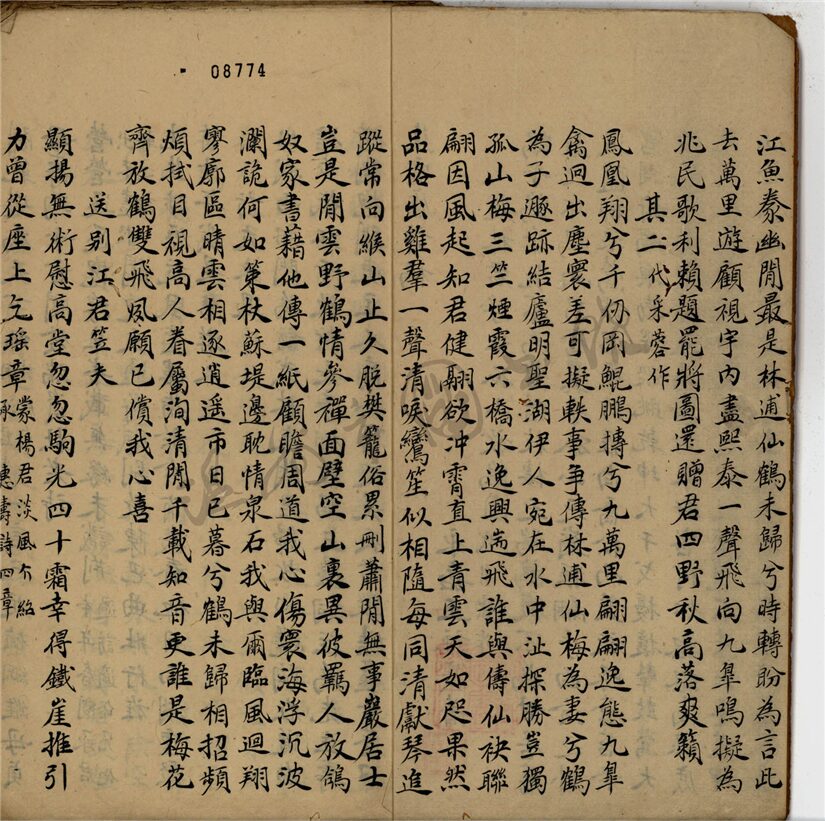 08774
江魚豢幽閒最是林逋仙鶴未歸兮時轉盼為言此
去萬里遊顧視宇內盡熙泰一聲飛向九皐鳴擬為
兆民歌利賴題罷將圖還贈君四野秋高落爽籟
其二代采蓉作
鳳凰翔兮千仞岡鯤鵬摶兮九萬里翩翩逸態九皐
禽迥出塵寰差可擬軼事爭傳林逋仙梅為妻兮鶴
為子遯跡結廬明聖湖伊人宛在水中沚探勝豈獨
孤山梅三竺煙霞六橋水逸興遄飛誰與儔仙袂聯
翩因風起知君健翮欲冲霄直上青雲天如咫果然
品格出雞羣一聲清唳鸞笙似相隨每同清獻琴進
蹤常向緱山止久脫樊籠俗累刪蕭閒無事巖居士
豈是閒雲野鶴情參禪面壁空山裏異彼羈人放鴿
奴家書藉他傳一紙顧瞻周道我心傷寰海浮沉波
瀾詭何如策杖蘇堤邊耽情泉石我與爾臨風迴翔
寥廓區晴雲相逐逍遥市日已暮兮鶴未歸相招頻
煩拭目視高人眷屬洵清閒千載知音更誰是梅花
齊放鶴雙飛夙願已償我心喜
送別江君笠夫
顯揚無術慰高堂忽忽駒光四十霜幸得鐵崖推引
力曾從座上乞瑶章蒙楊君淡風介紹
承惠壽詩四章